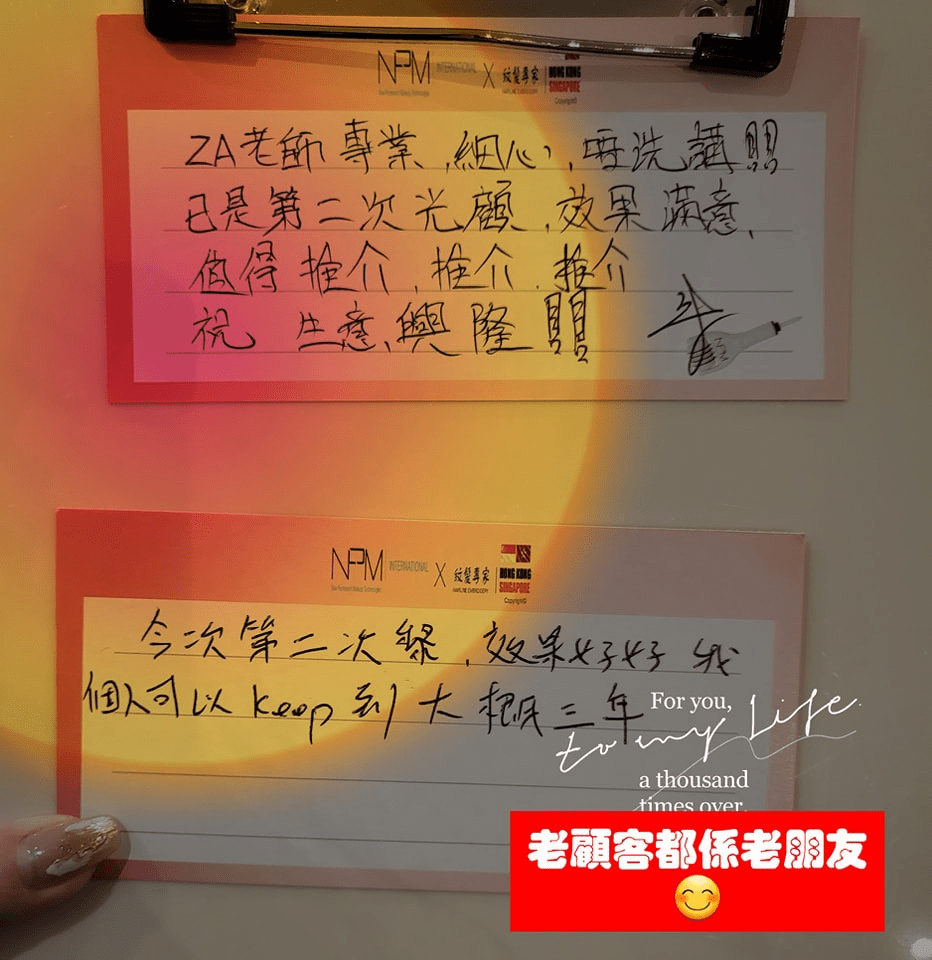 NPM INTERNATIONAL X 紋髮專家 HONG KONG SINGAPORE
Copyright©
ZA老師專業,細心,冇得講!!!
已是第二次光顧,效果滿意,
值得推介,推介,推介
祝 生意興隆!!!
NPM INTERNATIONAL X 紋髮專家 HONG KONG SINGAPORE
Copyright©
今次第二次繰,效果好好 我
個人可以 keep 到大概三年
For you,
to my Life
a thousand
times over.
老顧客都係老朋友
😊